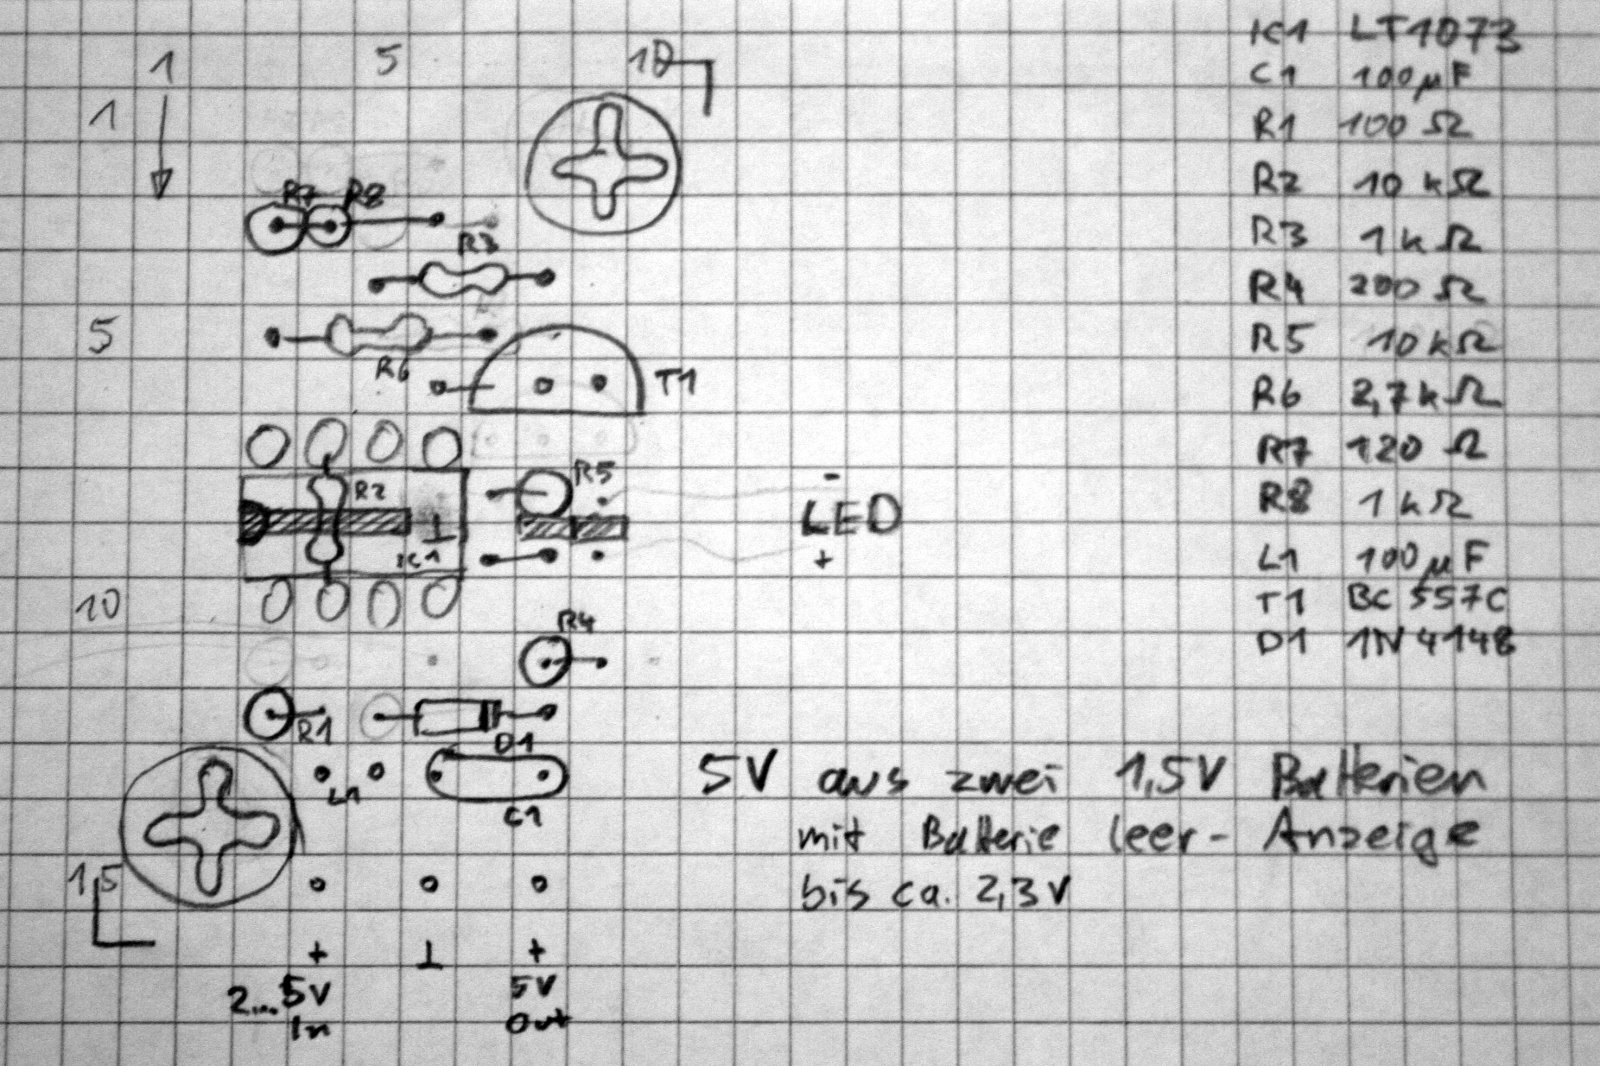 1 5 10
1
R7 R8
R3
5
R6
T1
R2
R5
-
LED
+
IC1
10
R4
R1
D1
L1
C1
15
+ ⊥ +
2...5V 5V
In Out
IC1 LT1073
C1 100µF
R1 100 Ω
R2 10 kΩ
R3 1kΩ
R4 200 Ω
R5 10kΩ
R6 2,7kΩ
R7 120 Ω
R8 1kΩ
L1 100µF
T1 BC 557C
D1 1N 4148
5V aus zwei 1,5V Batterien
mit Batterie leer-Anzeige
bis ca. 2,3V